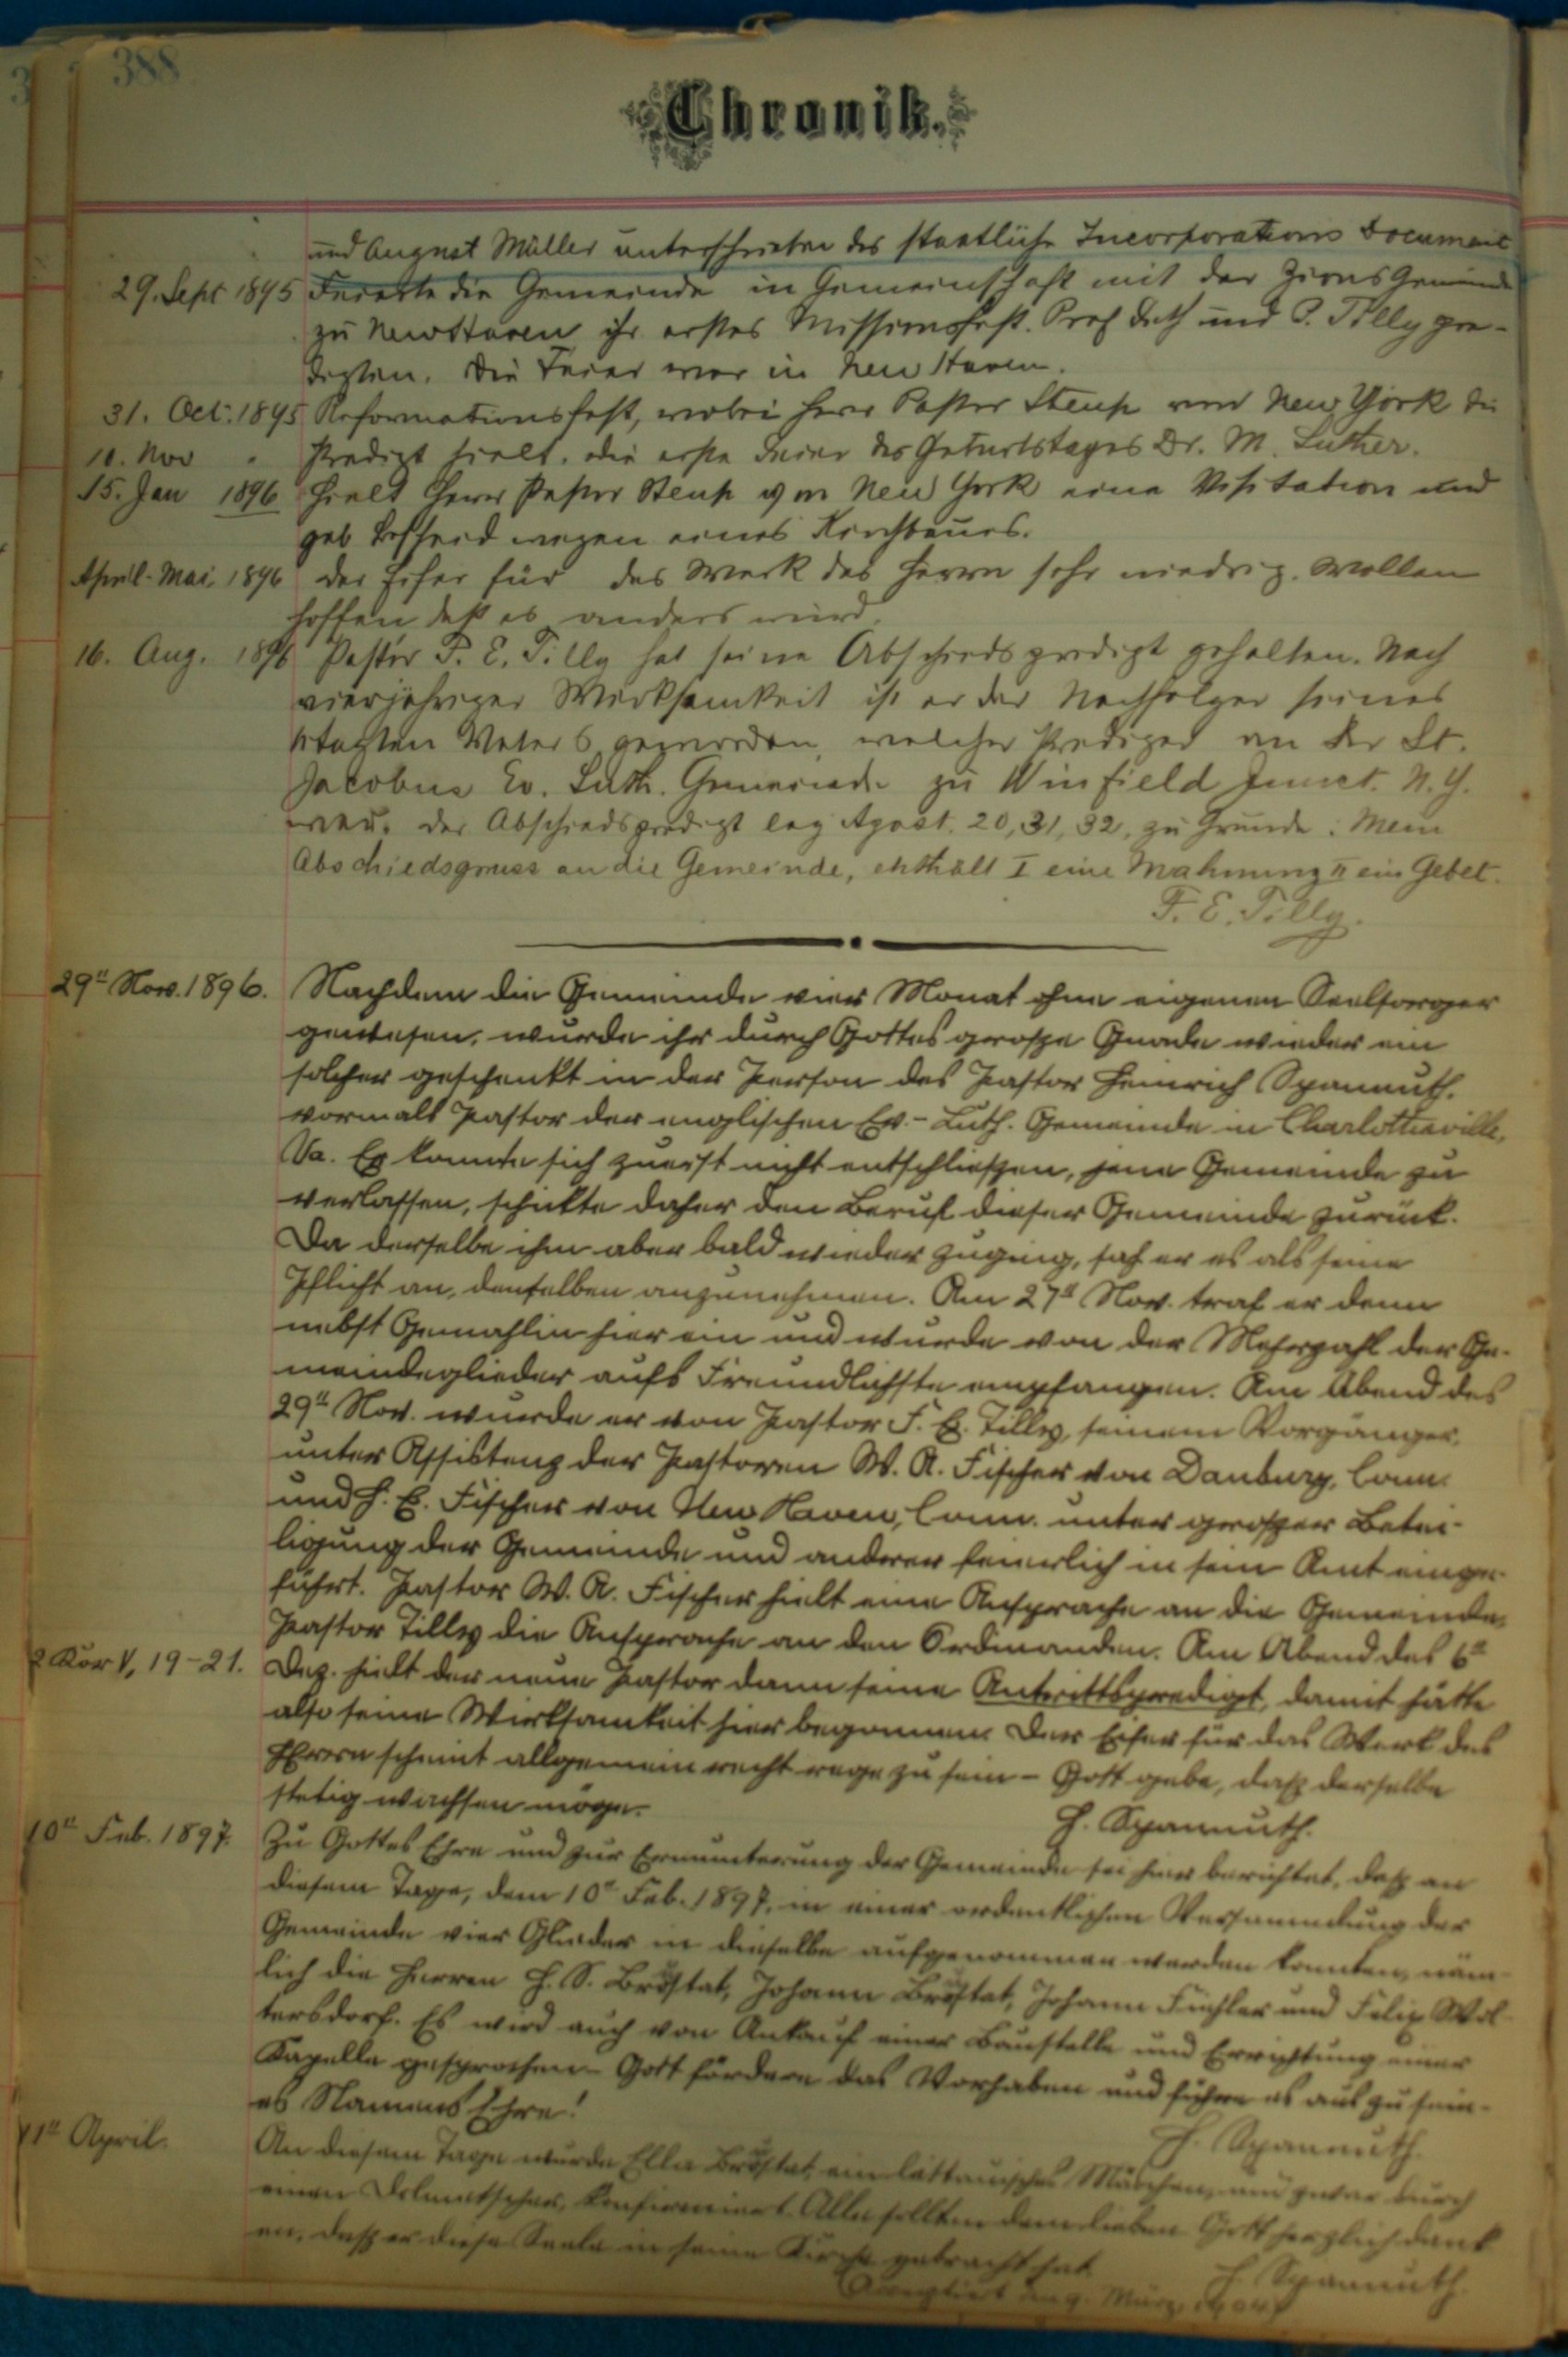 388
Chronik.
und August Müller unterschrieben das staatliche Incorporations Document
29. Sept 1895 Feierte die Gemeinde in Gemeinschaft mit der Zions Gemeinde
zu New Haven ihr erstes Missionsfest. Prof. und P. Tilly pre-
digten. Die Feier war in New Haven.
31. Oct. 1895 Reformationsfest, wobei Herr Pastor Steup von New York die
10. Nov " Predigt hielt. die erste Feier des Geburtstages Dr. M. Luther.
15. Jan 1896 hielt Herr Pastor Steup von New York eine Visitation und
gab Bescheid wegen eines Kirchbaues.
April-Mai 1896 der Eifer für das Werk des Herrn sehr niedrig. Wollen
hoffen daß es anders wird.
16. Aug. 1896 Pastor F. E. Tilly hat seine Abschiedspredigt gehalten. Nach
vierjähriger Wirksamkeit ist er der Nachfolger seines
betagten Vaters geworden, welcher Prediger an der St.
Jacobus Ev. Luth. Gemeinde zu Winfield Junct. N.Y.
war. Der Abschiedspredigt lag Apost. 20, 31, 32, zu Grunde: Mein
Abschiedsgruss an die Gemeinde, enthält I eine Mahnung II ein Gebet.
F. E. Tilly.
29ten Nov. 1896. Nachdem die Gemeinde vier Monat ohne eigenen Seelsorger
gewesen, wurde ihr durch Gottes große Gnade wieder ein
solcher geschenkt in der Person des Pastor Heinrich Spannuth,
vormals Pastor der englischen Ev.-Luth. Gemeinde in Charlottesville,
Va. Er konnte sich zuerst nicht entschließen, jene Gemeinde zu
verlassen, schickte daher den Beruf dieser Gemeinde zurück.
Da derselbe ihm aber bald wieder zuging, sah er es als seine
Pflicht an, denselben anzunehmen. Am 27ten Nov. traf er denn
nebst Gemahlin hier ein und wurde von der Mehrzahl der Ge-
meindeglieder aufs Freundlichste empfangen. Am Abend des
29ten Nov. wurde er von Pastor F. E. Tilly, seinem Vorgänger,
unter Assistenz der Pastoren W. A. Fischer von Danbury, Conn.
und H. E. Fischer von New Haven, Conn. unter großer Betei-
ligung der Gemeinde und anderer feierlich in sein Amt einge-
führt. Pastor W. A. Fischer hielt eine Ansprache an die Gemeinde,
Pastor Tilly die Ansprache an den Ordinanden. Am Abend des 6ten
2 Kor V, 19-21. Dez. hielt der neue Pastor dann seine Antrittspredigt, damit hätte
also seine Wirksamkeit hier begonnen. Der Eifer für das Werk des
HErrn scheint allgemein recht rege zu sein - Gott gebe, daß derselbe
stetig wachsen möge.
H. Spannuth.
10ten Feb. 1897. Zu Gottes Ehre und zur Ermunterung der Gemeinde sei hier berichtet, daß an
diesem Tage, dem 10ten Feb. 1897. in einer ordentlichen Versammlung der
Gemeinde vier Glieder in dieselbe aufgenommen werden konnten, näm-
lich die Herren H. S. Johann Johann und Felix Wol-
tersdorf. Es wird auch von Ankauf einer Baustelle und Errichtung einer
Kapelle gesprochen - Gott fördere das Vorhaben und führe es aus zu sein-
es Namens Ehre!
H. Spannuth.
11ten April. An diesem Tage wurde Ella ein Mädchen, und zwar durch
einen Dolmetscher, konfirmiert. Alle sollten dem lieben Gott herzlich dank-
en, daß er diese Seele in seine Kirche gebracht hat.
H. Spannuth.